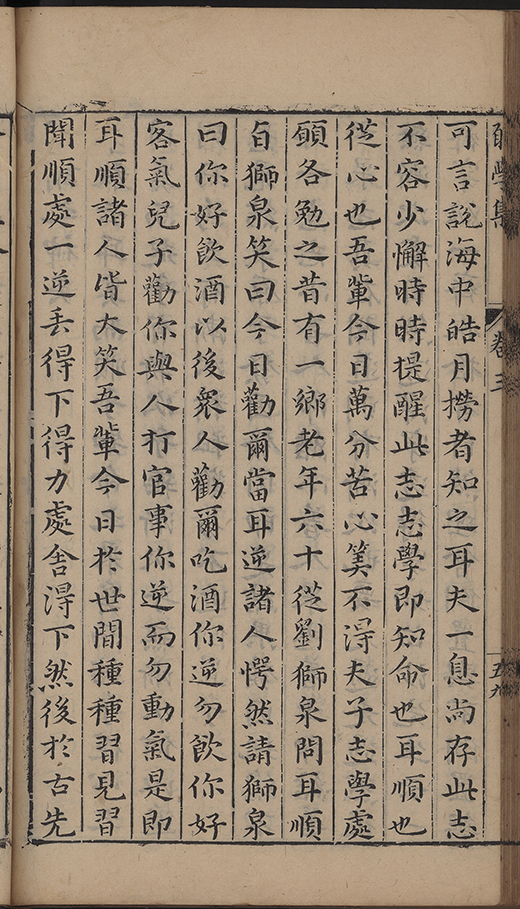 卷三
可言說海中皓月撈者知之耳夫一息尚存此志
不容少懈時時提醒此志志學即知命也耳順也
從心也吾輩今日萬分苦心筭不得夫子志學處
願各勉之昔有一鄉老年六十從劉獅泉問耳順
旨獅泉笑曰今日勸爾當耳逆諸人愕然請獅泉
曰你好飲酒以後衆人勸爾吃酒你逆勿飲你好
客氣兒子勸你與人打官事你逆而勿動氣是即
耳順諸人皆大笑吾輩今日於世間種種習見習
聞順處一逆丟得下得力處舍得下然後於古先